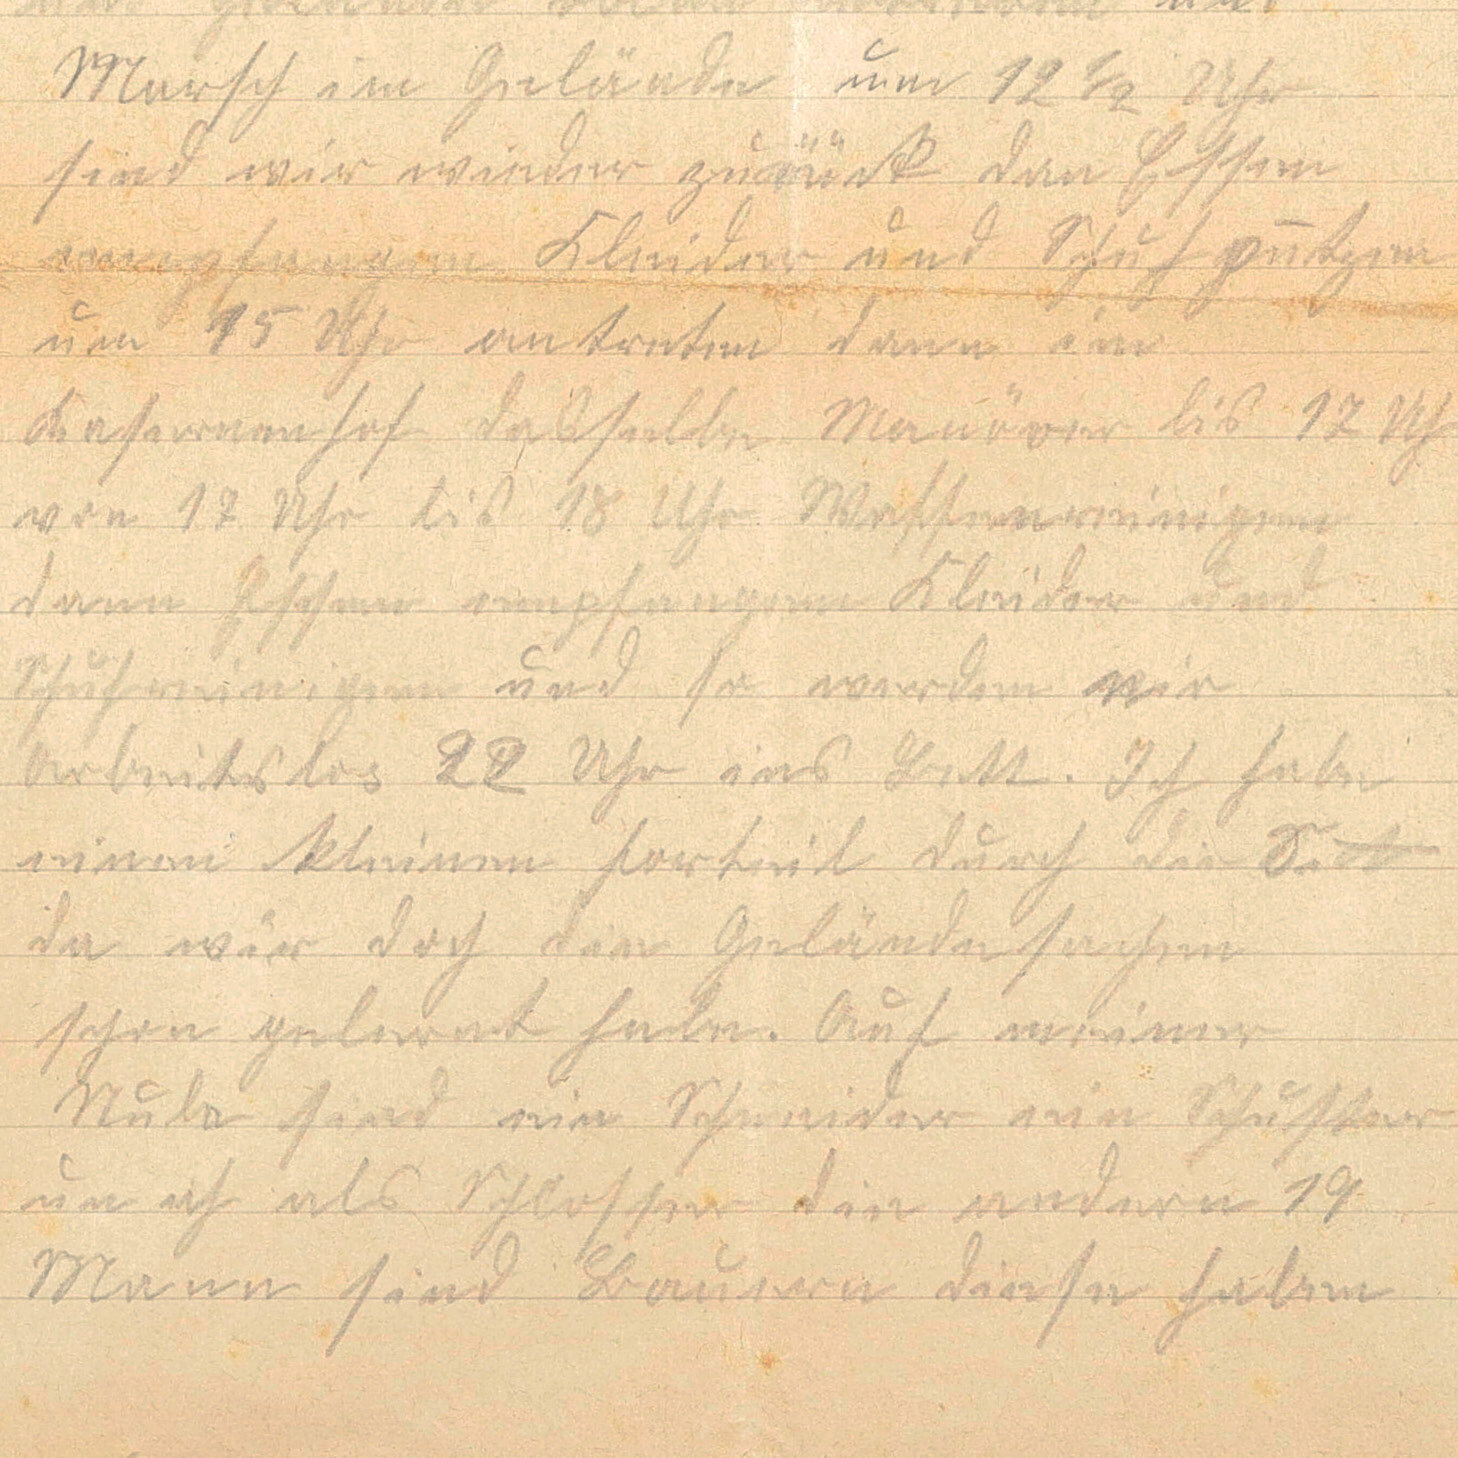 Marsch im Gelände um 12 1/2 Uhr
sind wir wieder zurück dan Essen
empfangen Kleider und Schuh putzen
um 15 Uhr antreten dann im
Kasernenhof dasselbe Manöver bis 17 Uh
von 17 Uhr bis 18 Uhr Waffenreinigen
dann Essen empfangen Kleider und
Schuh reinigen und so werden wir
Arbeitslos 22 Uhr ins Bett. Ich habe
einen kleinen Forteil durch die
da wir doch den Geländesachen
schon gelernt habe. Auf meiner
Stube sind ein Schneider ein Schuster
un ich als Schlosser die andern 19
Mann sind Bauern diese haben